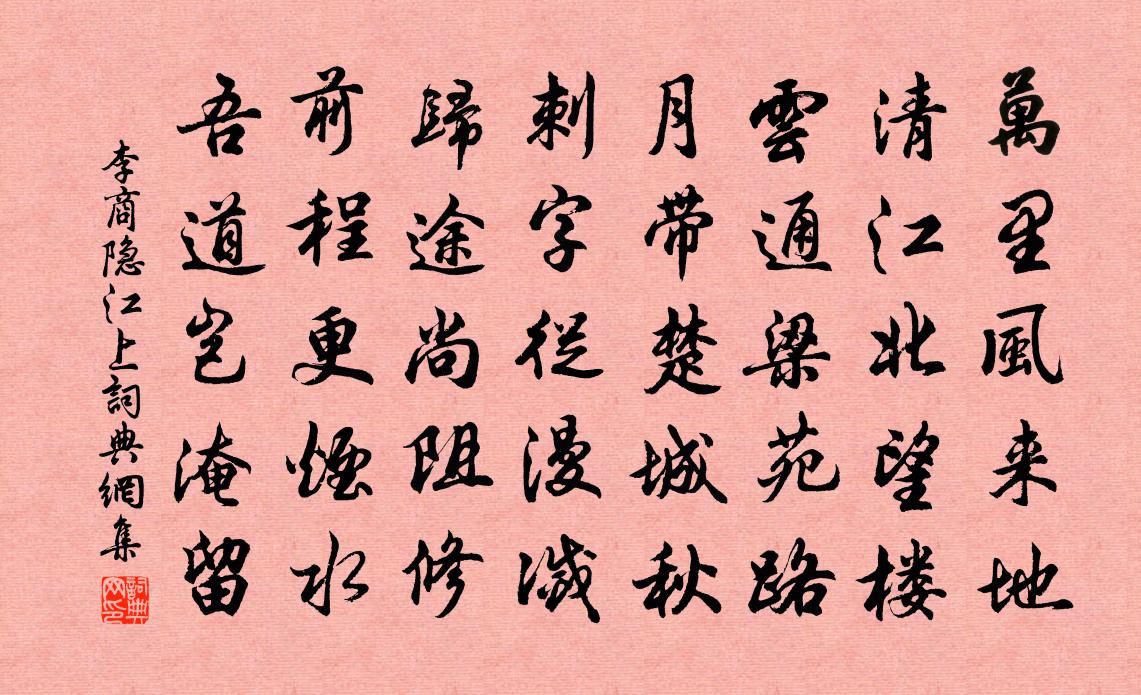 萬里風来地
清江北望楼
雲通梁苑路
月带楚城秋
刺字從漫滅
歸途尚阻修
前程更煙水
吾道豈淹留
李商隐江上詞典網集
詞典网印